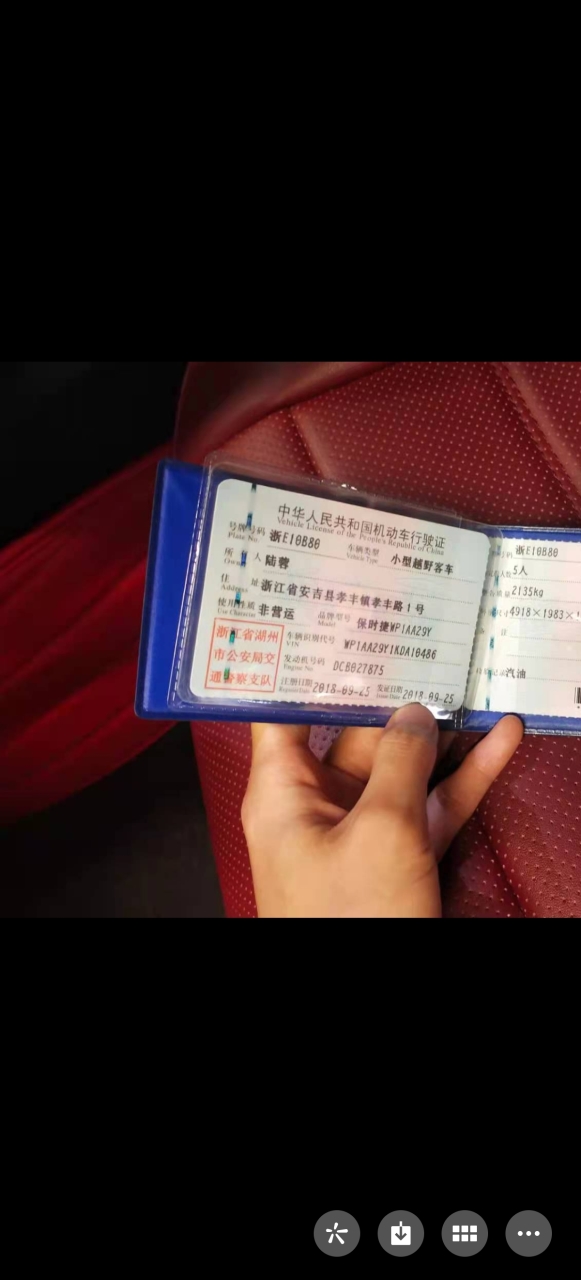 中华人民共和国机动车行驶证
Vehicle License of the People's Republic of China
号牌号码 浙E10B80 车辆类型 小型越野客车
Plate No. Vehicle Type
所 人 陆蓉
住 址 浙江省安吉县孝丰镇孝丰路1号
Address
使用性质 非营运 品牌型号 保时捷WP1AA29Y
Use Character Model
浙江省湖州
市公安局交
通警察支队
车辆识别代号 WP1AA29Y1KDA10486
VIN
发动机号码 DCB027875
Engine No.
注册日期 2018-09-25 发证日期 2018-09-25
Register Date Issue Date
浙E10B80
5人
2135kg
4918×1983×1
汽油